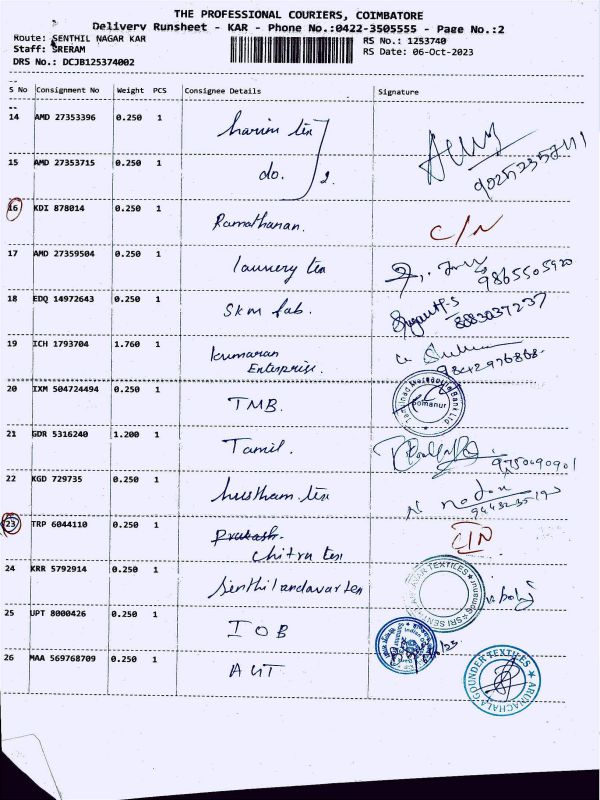 THE PROFESSIONAL COURIERS, COIMBATORE
Delivery Runsheet - KAR - Phone No.:0422-3505555 - Page No.:2
Route: SENTHIL NAGAR KAR
RS No.: 1253740
Staff: SRERAM
RS Date: 06-Oct-2023
DRS No.: DCJB125374002
S No Consignment No Weight PCS Consignee Details Signature
14 AMD 27353396 0.250 1 harini tex
15 AMD 27353715 0.250 1 do. 2.
16 KDI 878014 0.250 1 Ramathanan. C/N
17 AMD 27359504 0.250 1 tex 9865505920
18 EDQ 14972643 0.250 1 SKM fab. 8883037237
19 ICH 1793704 1.760 1 Kumaran Enterprise. 9842976868.
20 IXM 504724494 0.250 1 TMB. Tamilnad Mercantile Bank Ltd. Pomanur
21 GDR 5316240 1.200 1 Tamil. 9750690901
22 KGD 729735 0.250 1 tex
23 TRP 6044110 0.250 1 Prakash. Chitra tex C/N
24 KRR 5792914 0.250 1 Senthilandavar tex SRI SENTHILANDAVAR TEXTILES
25 UPT 8000426 0.250 1 IOB
26 MAA 569768709 0.250 1 AGT ARUNACHALA GOUNDER TEXTILES